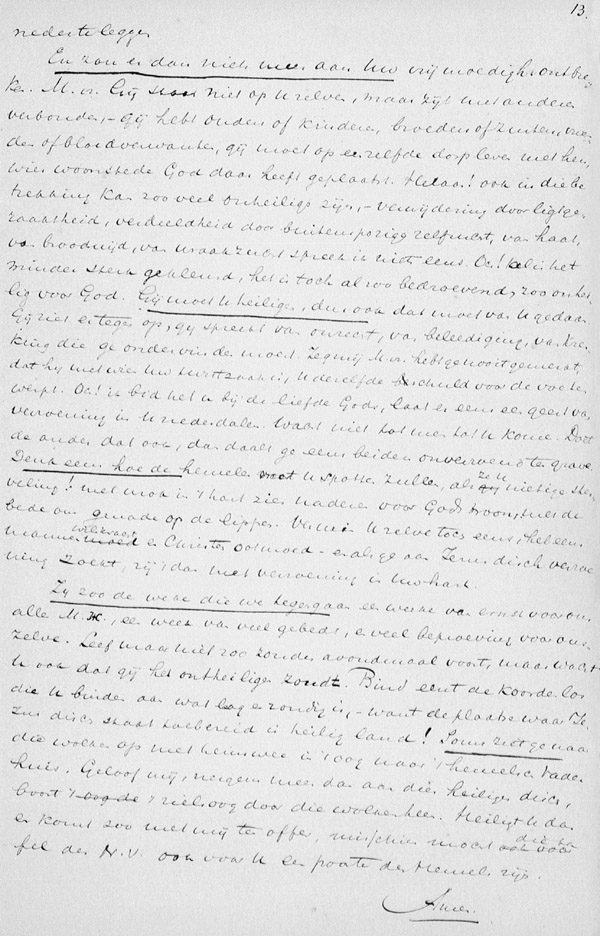 13.
neder te leggen
En zou er dan niets meer aan Uw vrijmoedigh. ontbre
ken. M. vr. Gij staat niet op U zelven, maar zijt met anderen
verbonden, – gij hebt ouden of kinderen, broeders of zusters, vrien
den of bloedverwanten, gij moet op eenzelfde dorp leven met hen,
wier woonstede God daar heeft geplaatst. Helaas! ook in die be
trekking kan zoo veel onheiligs zijn, – verwijdering door ligtge
raaktheid, verdeeldheid door buitensporige zelfzucht, van haat,
van broodnijd, van wraakzucht spreek ik niet eens. Och! zelfs het
minder sterk gekleurd, het is toch al zoo bedroevend, zoo onhei
lig voor God. Gij moet U heiligen, dus ook dat moet van U gedaan.
Gij ziet er tegen op, gij spreekt van onrecht, van beleediging, van kren
king die ge ondervinden moest. Zeg mij M. vr. hebt ge nooit gemerkt,
dat hij met wien Uw twistzaak is, U dezelfde schuld voor de voeten
werpt. Och! ik bid het U bij de liefde Gods, laat er eens een geest van
verzoening in U nederdalen. Wacht niet tot men tot U kome. Doet
de ander dat ook, dan daalt ge eens beiden onverzoend te grave.
Denk eens hoe de hemelen met U spotten zullen, als ze U nietige ster
veling! met wrok in 't hart zien naderen voor Gods troon, met de
bede om genade op de lippen. Verwin U zelve toch eens, heb eens
mannen wilskracht en Christen ootmoed – en als ge aan Jezus disch verzoe
ning zoekt, zij 't dan met verzoening in Uw hart.
Zij zoo de weke die we tegengaan een weke van ernst voor ons
alle M. H., een week van veel gebeds, en veel beproeving voor ons-
zelve. Leef maar niet zoo zonder avondmaal voort, maar wacht
U ook dat gij het ontheiligen zoudt. Bind eerst de koorden los
die U binden aan wat laag en zondig is, – want de plaatse waar Je-
zus disch staat toebereid is heilig land! Soms ziet ge naar
die wolken op met heimwee in 't oog naar 't hemelsch Vader
huis. Geloof mij, nergens meer dan aan dien heiligen disch,
boort 't zielsoog door die wolken heen. Heiligt U dan
en komt zoo met mij ten offer, misschien moest die ta
fel des H. V. ook voor U een poorte des Hemels zijn.
Amen.